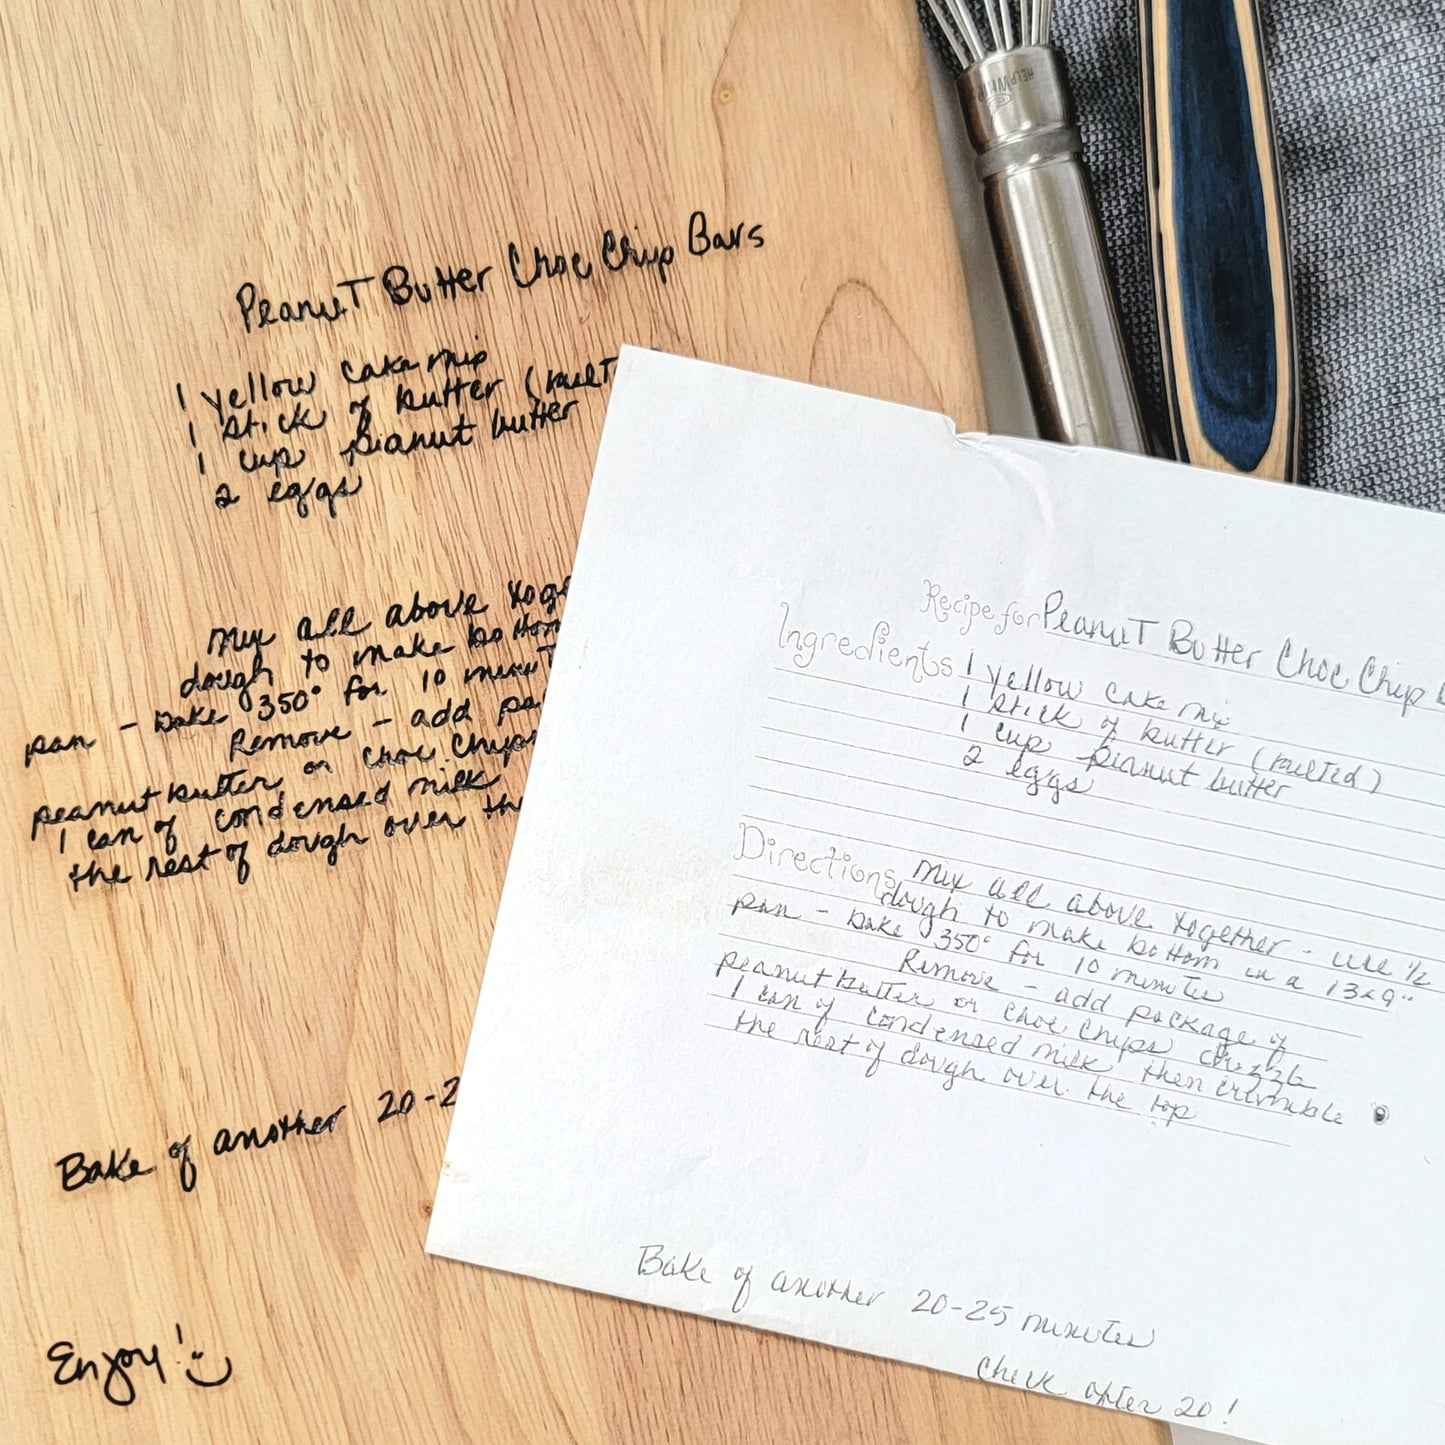 HELPWHIP
Peanut Butter Choc Chip Bars
1 yellow cake mix
1 stick of butter (melt
1 cup peanut butter
2 eggs
Mix all above toge
dough to make bottom
pan - Bake 350° for 10 minut
Remove - add pa
peanut butter or choc chips
1 can of condensed milk
the rest of dough over the
Bake of another 20-2
Enjoy!
Recipe for Peanut Butter Choc Chip B
Ingredients 1 yellow cake mix
1 stick of butter (melted)
1 cup peanut butter
2 eggs
Directions Mix all above together - use 1/2
dough to make bottom in a 13x9"
pan - Bake 350° for 10 minutes
Remove - add package of
peanut butter or choc chips drizzle
1 can of condensed milk then crumble
the rest of dough over the top
Bake of another 20-25 minutes
check after 20!